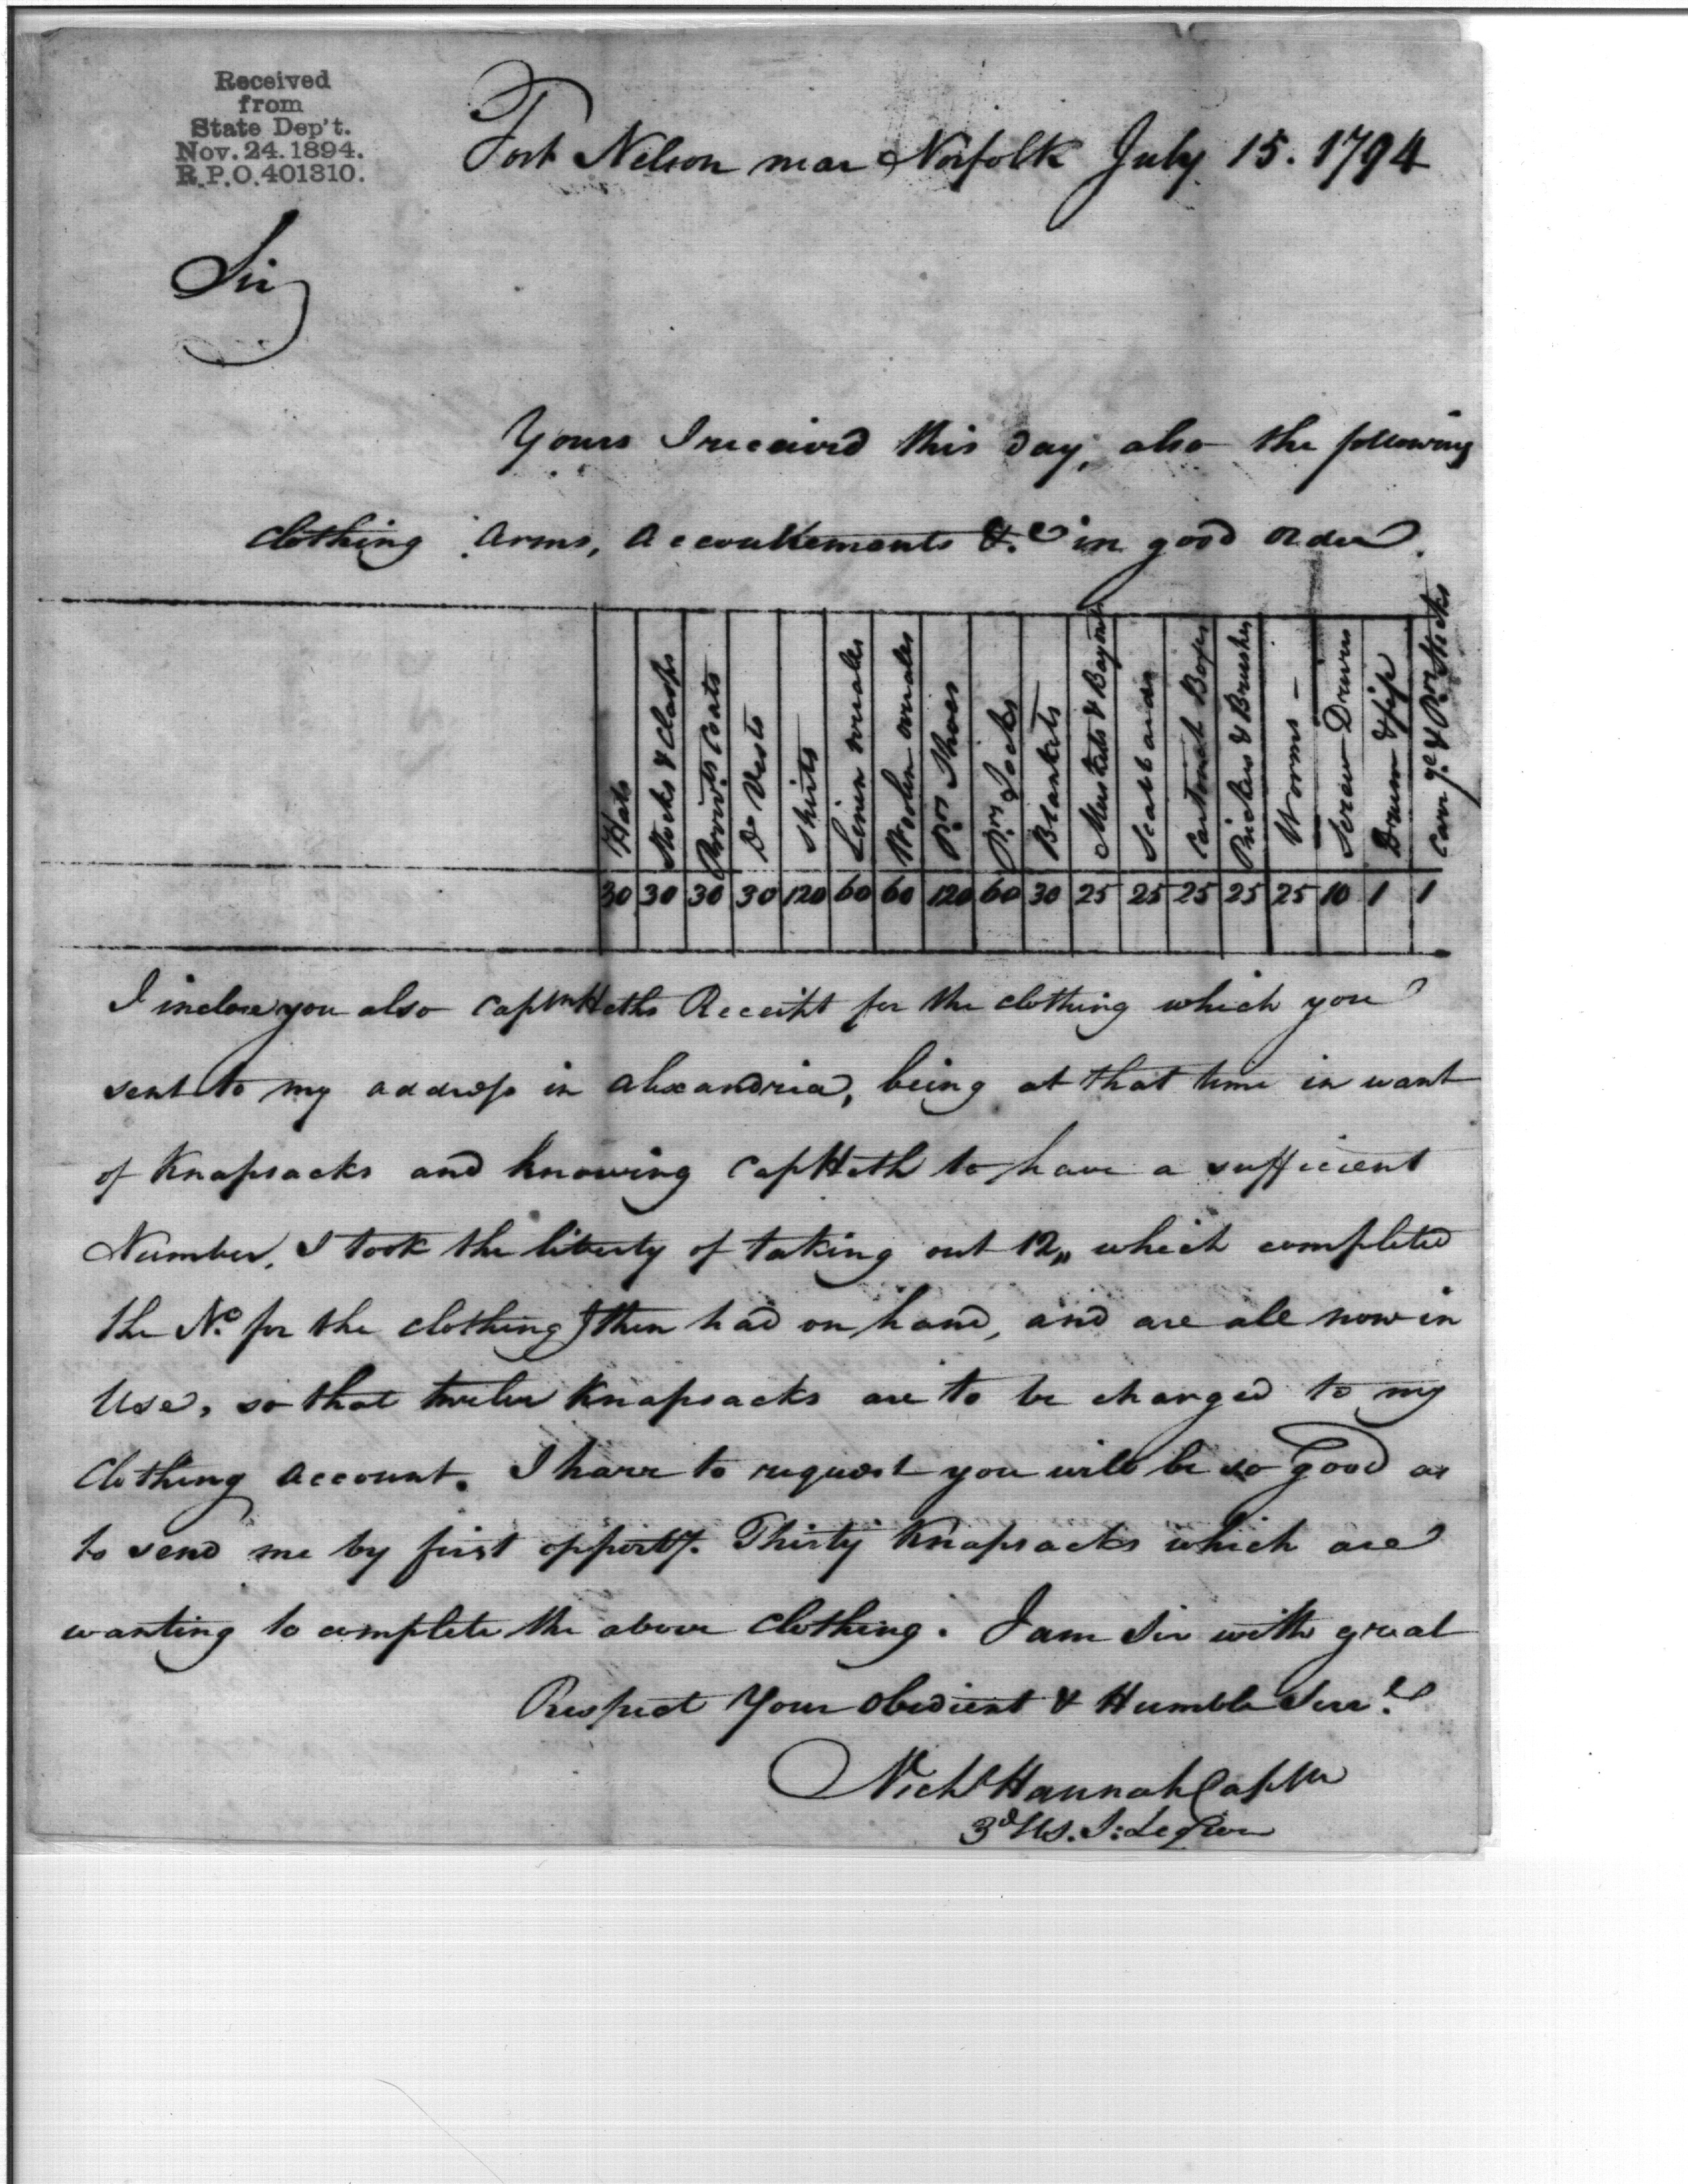 Received
from
State Dep't.
Nov. 24. 1894.
R.P.O. 401310.
Fort Nelson near Norfolk July 15. 1794
Sir
Yours I receivd this day, also the following
clothing Arms, Accoutrements &.c in good order.
Hats
Stocks & Clasps
Privts. Coats
Do Vests
Shirts
Linen overalls
Woolen overalls
Prs Shoes
Prs Socks
Blankets
Muskets & Bayonets
Scabbards
Cartouch Boxes
Pickers & Brushes
Worms —
Screw Drivers
Drum & fife
Carrge. & Pr. Sticks
30 30 30 30 120 60 60 120 60 30 25 25 25 25 25 10 1 1
I inclose you also Captn Heths Receipt for the clothing which you
sent to my address in Alexandria, being at that time in want
of Knapsacks and knowing Cap Heth to have a sufficient
Number, I took the liberty of taking out 12,, which completed
the No. for the clothing I then had on hand, and are all now in
Use, so that twelve Knapsacks are to be charged to my
Clothing Account. I have to request you will be so Good as
to send me by first opporty. Thirty Knapsacks which are
wanting to complete the above Clothing. I am Sir with great
Respect Your Obedient & Humble Servt.
Nichs Hannah Captn
3d U.S. S: Legion